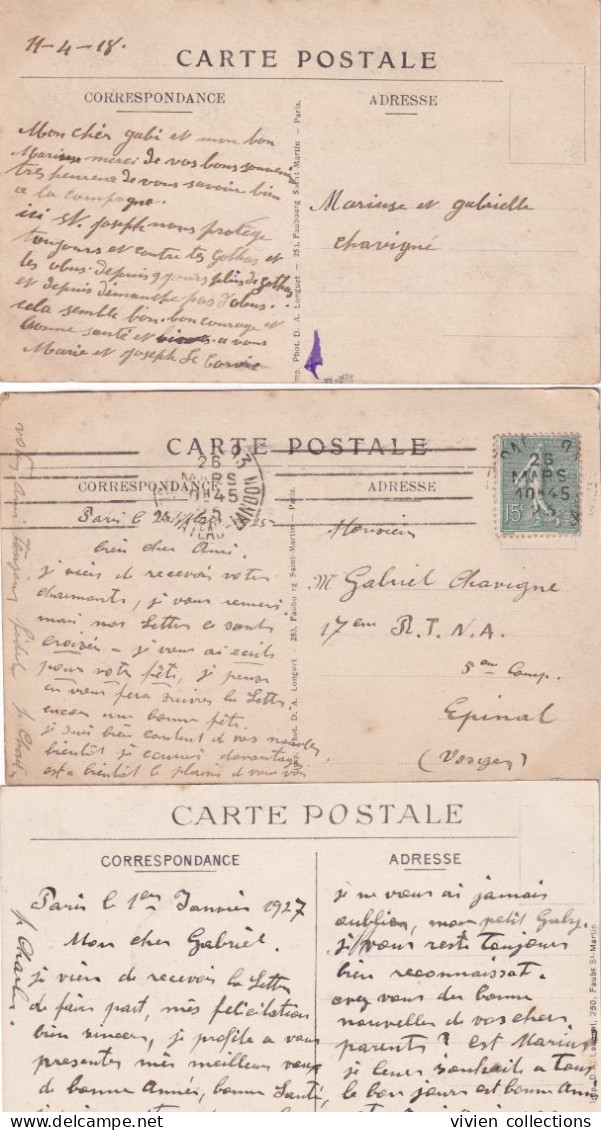 11-4-18.
CARTE POSTALE
CORRESPONDANCE
ADRESSE
Mon chér gabi et mon bon
Mariuse merci de vos bons souvenirs
tres heureux de vous savoir bien
a la campagne.
ici St. Joseph nous protége
toujours et contre les gothas et
les obus. depuis 9 jours plus de gothas
et depuis démanche pas d'obus.
cela semble bon. bon courage et
bonne santé et a vous
Marie et Joseph Le
Imp. Phot. D. A. Longuet — 250, Faubourg Saint-Martin — Paris.
Mariuse et gabrielle
chavigné
CARTE POSTALE
CORRESPONDANCE
ADRESSE
26
MARS
10H45
Paris le
bien cher Ami.
je viens de recevoir votre
charmante, je vous remerci
mais nos Lettre ce sont
croisée — je vous ai ecrit
pour votre fête, je pense
en vous fera suivre la Lettre.
encore une bonne fête.
je suis bien content d vos nouvelles
bientôt je ecrirai davantage
est a bientôt le plaisir d vous voir
votre Ami toujours fidel p. Charles
Imp. Phot. D. A. Longuet — 250, Faubourg Saint-Martin — Paris.
26
MARS
10H45
15c
Monsieur
Mr Gabriel Chavigne
17em R. T. N. A.
5em Comp.
Epinal
(Vosges)
CARTE POSTALE
CORRESPONDANCE
ADRESSE
Paris le 1er Janvier 1927
Mon cher Gabriel.
je vien de recevoir la Lettre
de faire part, mês felicitation
bien sincere, je profite a vous
presenter mês meilleurs voeux
de bonne Année, bonne Santé,
p. Charles.
je ne vous ai jamais
oublier, mon petit Gaby.
je vous reste toujours
bien reconnaissat.
avez vous des bonne
nouvelles de vos chers
parents? est Marius
je leurs souhaite a tous
le bon jours est bonne Anné
Imp. D. A. Longuet, 250, Faubg St-Martin
vivien collections